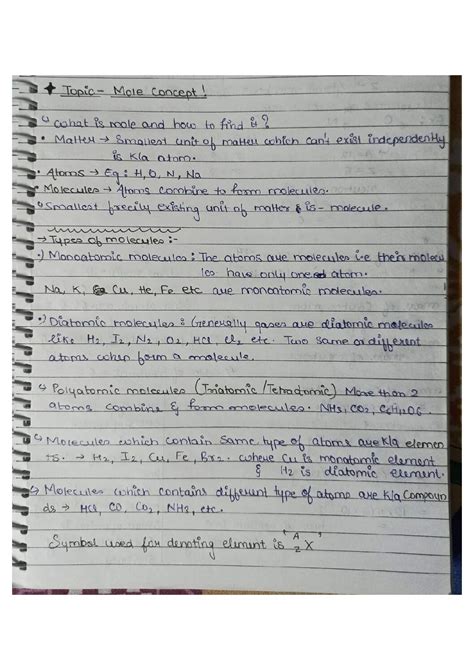 ✦ Topic - Mole Concept!
↳ What is mole and how to find it?
• Matter → Smallest unit of matter which can't exist independently
is K/a atom.
• Atoms → Eg: H, O, N, Na
• Molecules → Atoms combine to form molecules.
Smallest freely existing unit of matter is - molecule.
→ Types of molecules :-
•) Monoatomic molecules: The atoms are molecules i.e their molecu
les have only one atom.
Na, K, Cu, He, Fe etc are monoatomic molecules.
•) Diatomic molecules: Generally gases are diatomic molecules
like H2, I2, N2, O2, HCl, Cl2 etc. Two same or different
atoms when form a molecule.
↳ Polyatomic molecules (Triatomic / Tetratomic) More than 2
atoms combine & form molecules. NH3, CO2, C6H12O6.
↳ Molecules which contain same type of atoms are K/a elemen
ts. → H2, I2, Cu, Fe, Br2. where Cu is monatomic element
& H2 is diatomic element.
↳ Molecules which contains different type of atoms are K/a Compoun
ds → HCl, CO, CO2, NH3, etc.
Symbol used for denoting element is ' A Z X '